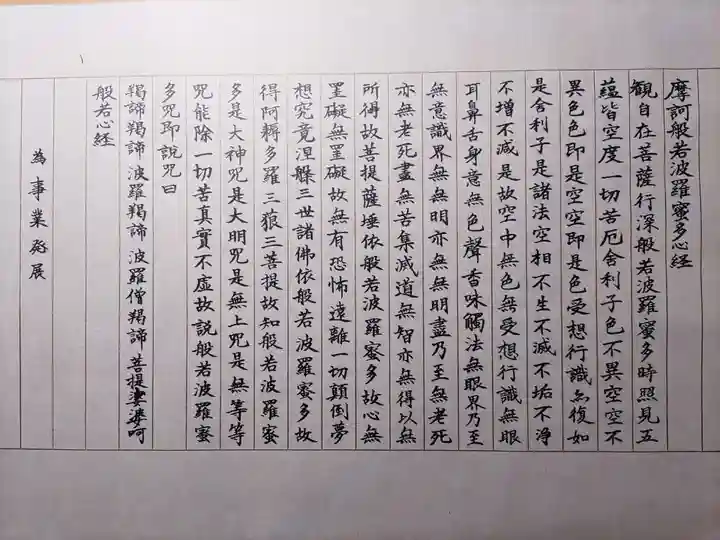 摩訶般若波羅蜜多心経
観自在菩薩行深般若波羅蜜多時照見五
蘊皆空度一切苦厄舎利子色不異空空不
異色色即是空空即是色受想行識亦復如
是舎利子是諸法空相不生不滅不垢不浄
不増不減是故空中無色無受想行識無眼
耳鼻舌身意無色聲香味觸法無眼界乃至
無意識界無無明亦無無明盡乃至無老死
亦無老死盡無苦集滅道無智亦無得以無
所得故菩提薩埵依般若波羅蜜多故心無
罣礙無罣礙故無有恐怖遠離一切顛倒夢
想究竟涅槃三世諸佛依般若波羅蜜多故
得阿耨多羅三藐三菩提故知般若波羅蜜
多是大神咒是大明咒是無上咒是無等等
咒能除一切苦真實不虚故説般若波羅蜜
多咒即説咒曰
羯諦羯諦波羅羯諦波羅僧羯諦菩提婆婆呵
般若心経
為事業発展